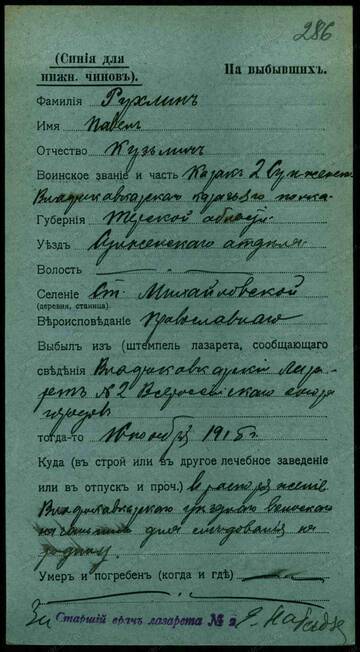 286
(Синія для
нижн. чиновъ).
На выбывшихъ.
Фамилія Рухлинъ
Имя Павелъ
Отчество Кузьмич
Воинское званіе и часть Казакъ 2 Сунженско
Владикавказскаго казачьяго полка
Губернія Терской области
Уѣздъ Сунженскаго отдѣла
Волость
Селеніе Ст. Михайловской
(деревня, станица).
Вѣроисповѣданіе Православнаго
Выбылъ изъ (штемпель лазарета, сообщающаго
свѣдѣнія Владикавказскій Лаза-
ретъ №2 Всероссійскаго союза
городов
тогда-то ноября 1915 г.
Куда (въ строй или въ другое лечебное заведеніе
или въ отпускъ и проч.) в распоряженіе
Владикавказскаго уѣзднаго воинскаго
начальника для слѣдованія на
родину.
Умеръ и погребенъ (когда и гдѣ)
За Старшій врачъ лазарета № 2